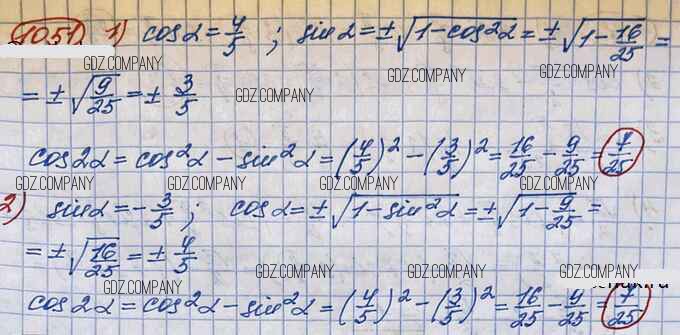 1051 1) cos α = 4/5 ; sin α = ±√(1 - cos²α) = ±√(1 - 16/25) =
GDZ.COMPANY GDZ.COMPANY GDZ.COMPANY
= ±√(9/25) = ± 3/5 GDZ.COMPANY
cos 2α = cos²α - sin²α = (4/5)² - (3/5)² = 16/25 - 9/25 = 7/25
GDZ.COMPANY GDZ.COMPANY GDZ.COMPANY GDZ.COMPANY
2) sin α = - 3/5 ; cos α = ±√(1 - sin²α) = ±√(1 - 9/25) =
= ±√(16/25) = ± 4/5
GDZ.COMPANY GDZ.COMPANY GDZ.COMPANY GDZ.COMPANY
cos 2α = cos²α - sin²α = (4/5)² - (3/5)² = 16/25 - 9/25 = 7/25